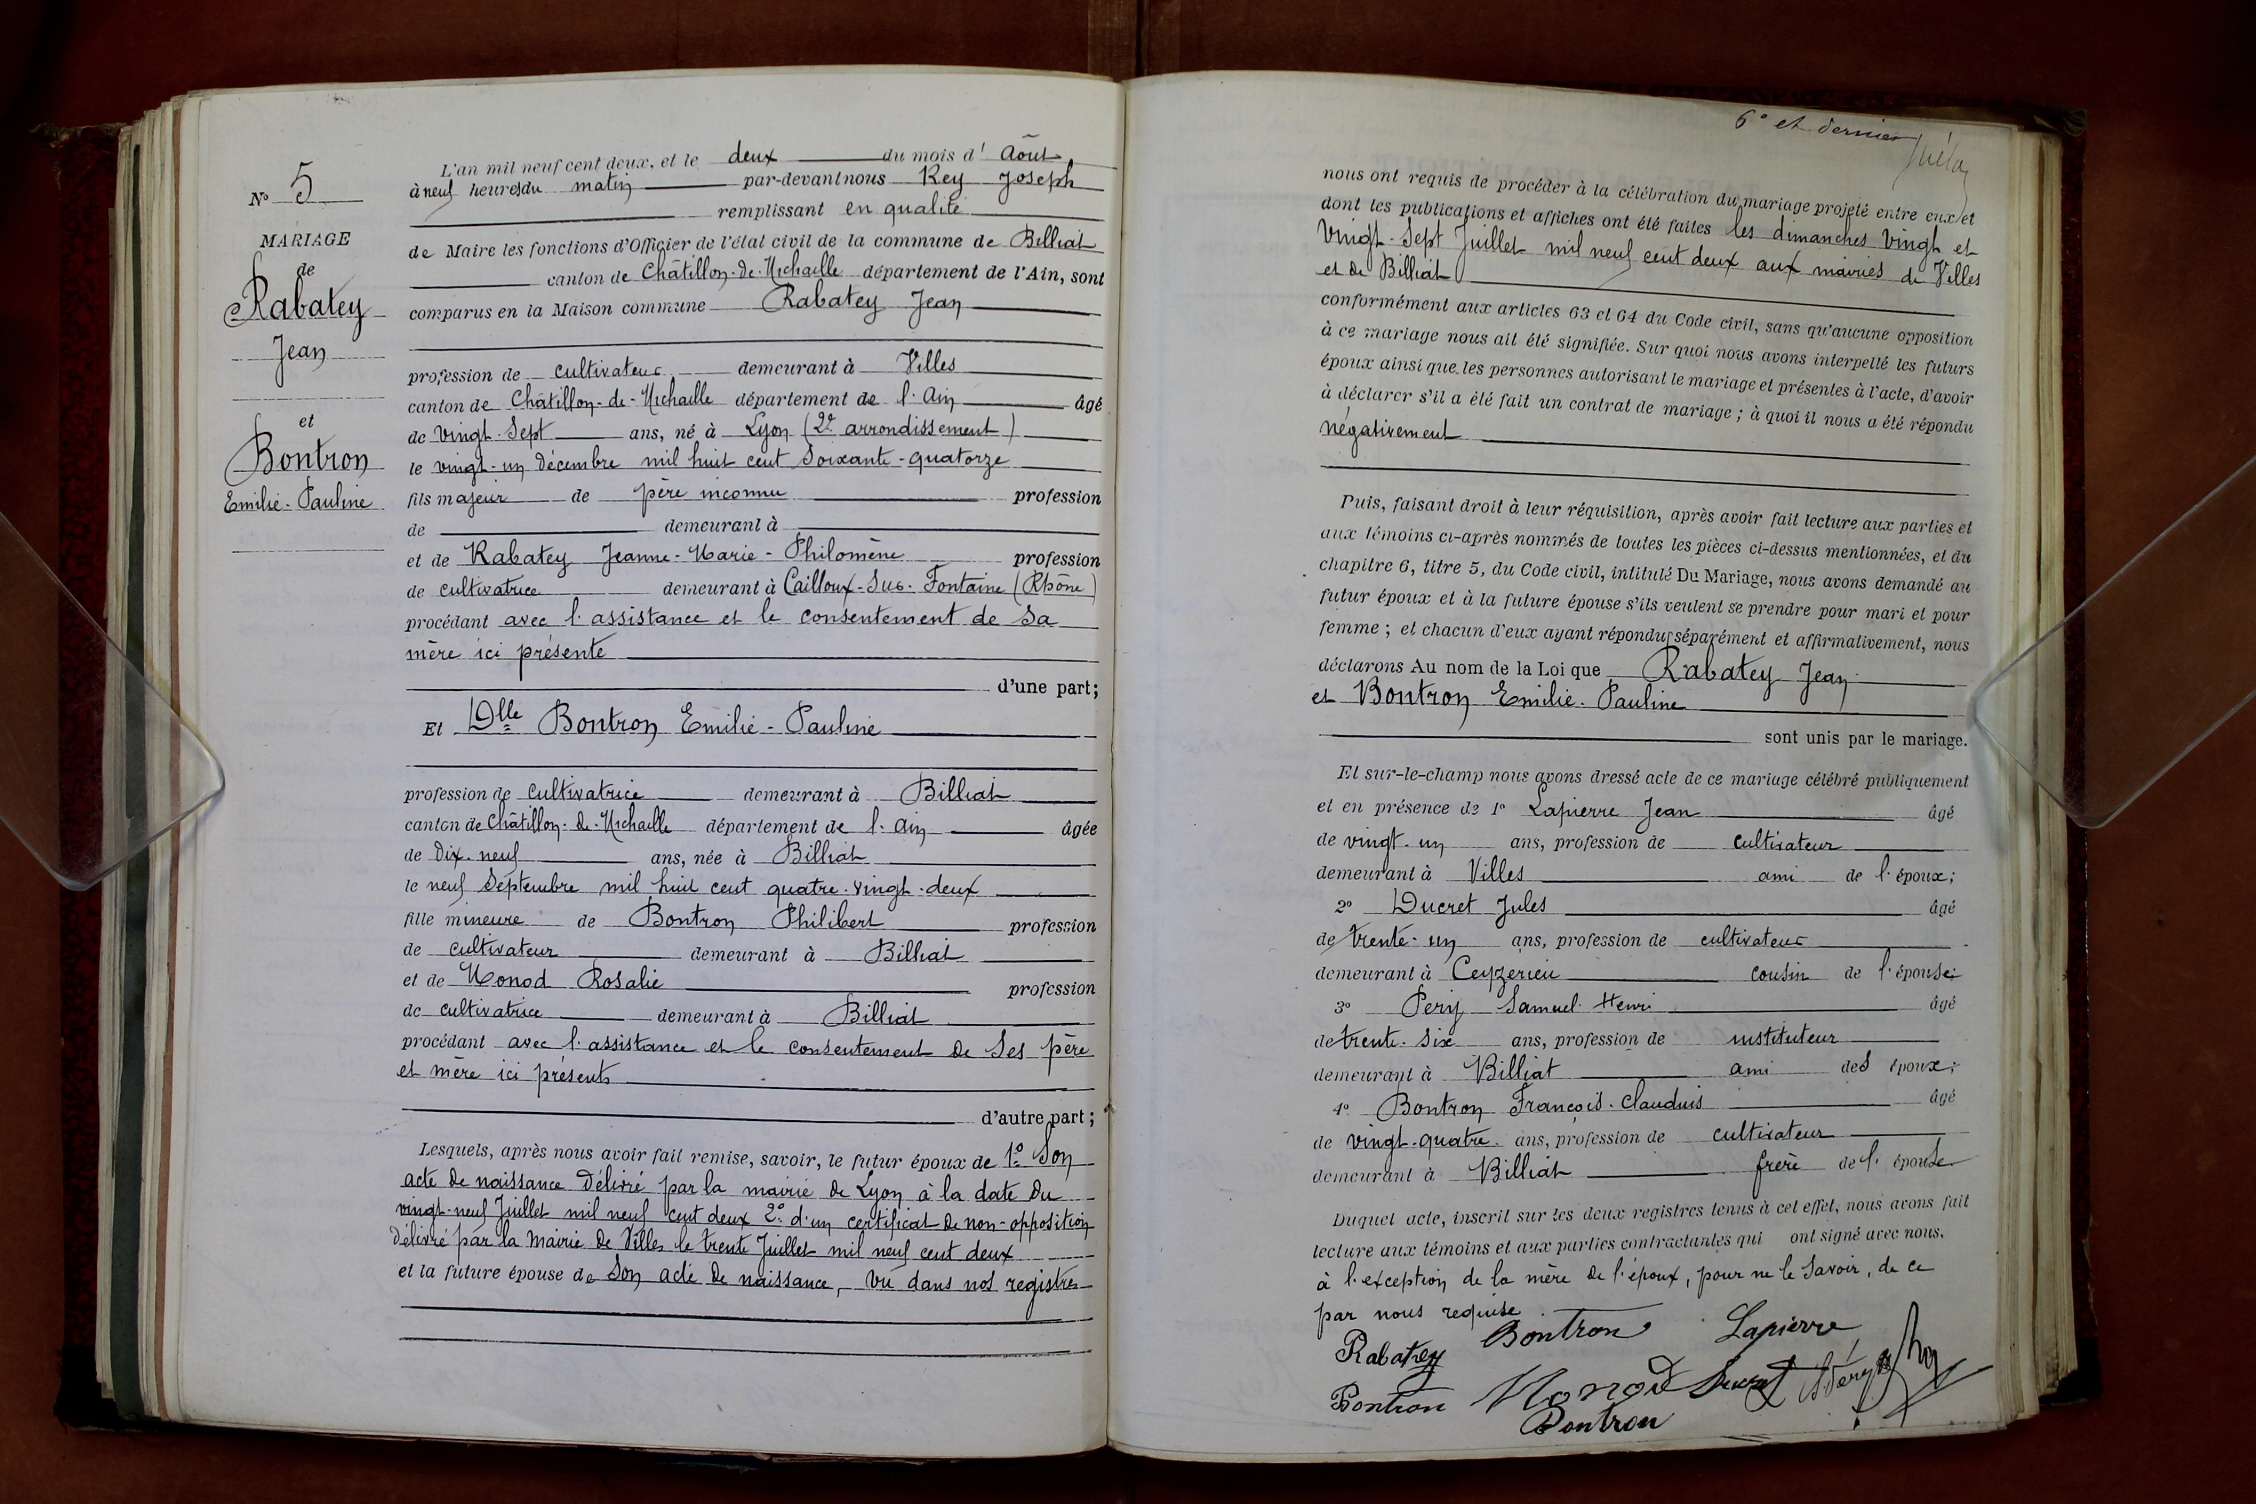 N° 5
MARIAGE
de
Rabatey
Jean
et
Bontron
Emilie-Pauline
L'an mil neuf cent deux, et le deux du mois d' Août
à neuf heures du matin par-devant nous Rey Joseph
remplissant en qualité
de Maire les fonctions d'Officier de l'état civil de la commune de Billiat
canton de Châtillon-de-Michaille département de l'Ain, sont
comparus en la Maison commune Rabatey Jean
profession de cultivateur demeurant à Villes
canton de Châtillon-de-Michaille département de l'Ain âgé
de vingt-sept ans, né à Lyon (2e arrondissement)
le vingt-un décembre mil huit cent soixante-quatorze
fils majeur de père inconnu profession
de demeurant à
et de Rabatey Jeanne-Marie-Philomène profession
de cultivatrice demeurant à Cailloux-sur-Fontaine (Rhône)
procédant avec l'assistance et le consentement de sa
mère ici présente
d'une part;
Et Dlle Bontron Emilie-Pauline
profession de cultivatrice demeurant à Billiat
canton de Châtillon-de-Michaille département de l'Ain âgée
de dix-neuf ans, née à Billiat
le neuf Septembre mil huit cent quatre-vingt-deux
fille mineure de Bontron Philibert profession
de cultivateur demeurant à Billiat
et de Monod Rosalie profession
de cultivatrice demeurant à Billiat
procédant avec l'assistance et le consentement de ses père
et mère ici présents
d'autre part;
Lesquels, après nous avoir fait remise, savoir, le futur époux de 1° Son
acte de naissance délivré par la mairie de Lyon à la date du
vingt-neuf Juillet mil neuf cent deux 2° d'un certificat de non-opposition
délivré par la Mairie de Villes le trente Juillet mil neuf cent deux
et la future épouse de son acte de naissance, vu dans nos registres
6° et dernier
nous ont requis de procéder à la célébration du mariage projeté entre eux et
dont les publications et affiches ont été faites les dimanches vingt et
vingt-sept Juillet mil neuf cent deux aux mairies de Villes
et de Billiat
conformément aux articles 63 et 64 du Code civil, sans qu'aucune opposition
à ce mariage nous ait été signifiée. Sur quoi nous avons interpellé les futurs
époux ainsi que les personnes autorisant le mariage et présentes à l'acte, d'avoir
à déclarer s'il a été fait un contrat de mariage ; à quoi il nous a été répondu
négativement
Puis, faisant droit à leur réquisition, après avoir fait lecture aux parties et
aux témoins ci-après nommés de toutes les pièces ci-dessus mentionnées, et du
chapitre 6, titre 5, du Code civil, intitulé Du Mariage, nous avons demandé au
futur époux et à la future épouse s'ils veulent se prendre pour mari et pour
femme ; et chacun d'eux ayant répondu séparément et affirmativement, nous
déclarons Au nom de la Loi que Rabatey Jean
et Bontron Emilie-Pauline
sont unis par le mariage.
Et sur-le-champ nous avons dressé acte de ce mariage célébré publiquement
et en présence de 1° Lapierre Jean âgé
de vingt-un ans, profession de cultivateur
demeurant à Villes ami de l'époux;
2° Ducret Jules âgé
de trente-un ans, profession de cultivateur
demeurant à Ceyzérieu cousin de l'épouse;
3° Pery Samuel Henri âgé
de trente-six ans, profession de instituteur
demeurant à Billiat ami des époux;
4° Bontron François-Claudius âgé
de vingt-quatre ans, profession de cultivateur
demeurant à Billiat frère de l'épouse
Duquel acte, inscrit sur les deux registres tenus à cet effet, nous avons fait
lecture aux témoins et aux parties contractantes qui ont signé avec nous.
à l'exception de la mère de l'époux, pour ne le savoir, de ce
par nous requise.
Rabatey Bontron Lapierre
Bontron Monod Ducret Péry Rey
Bontron